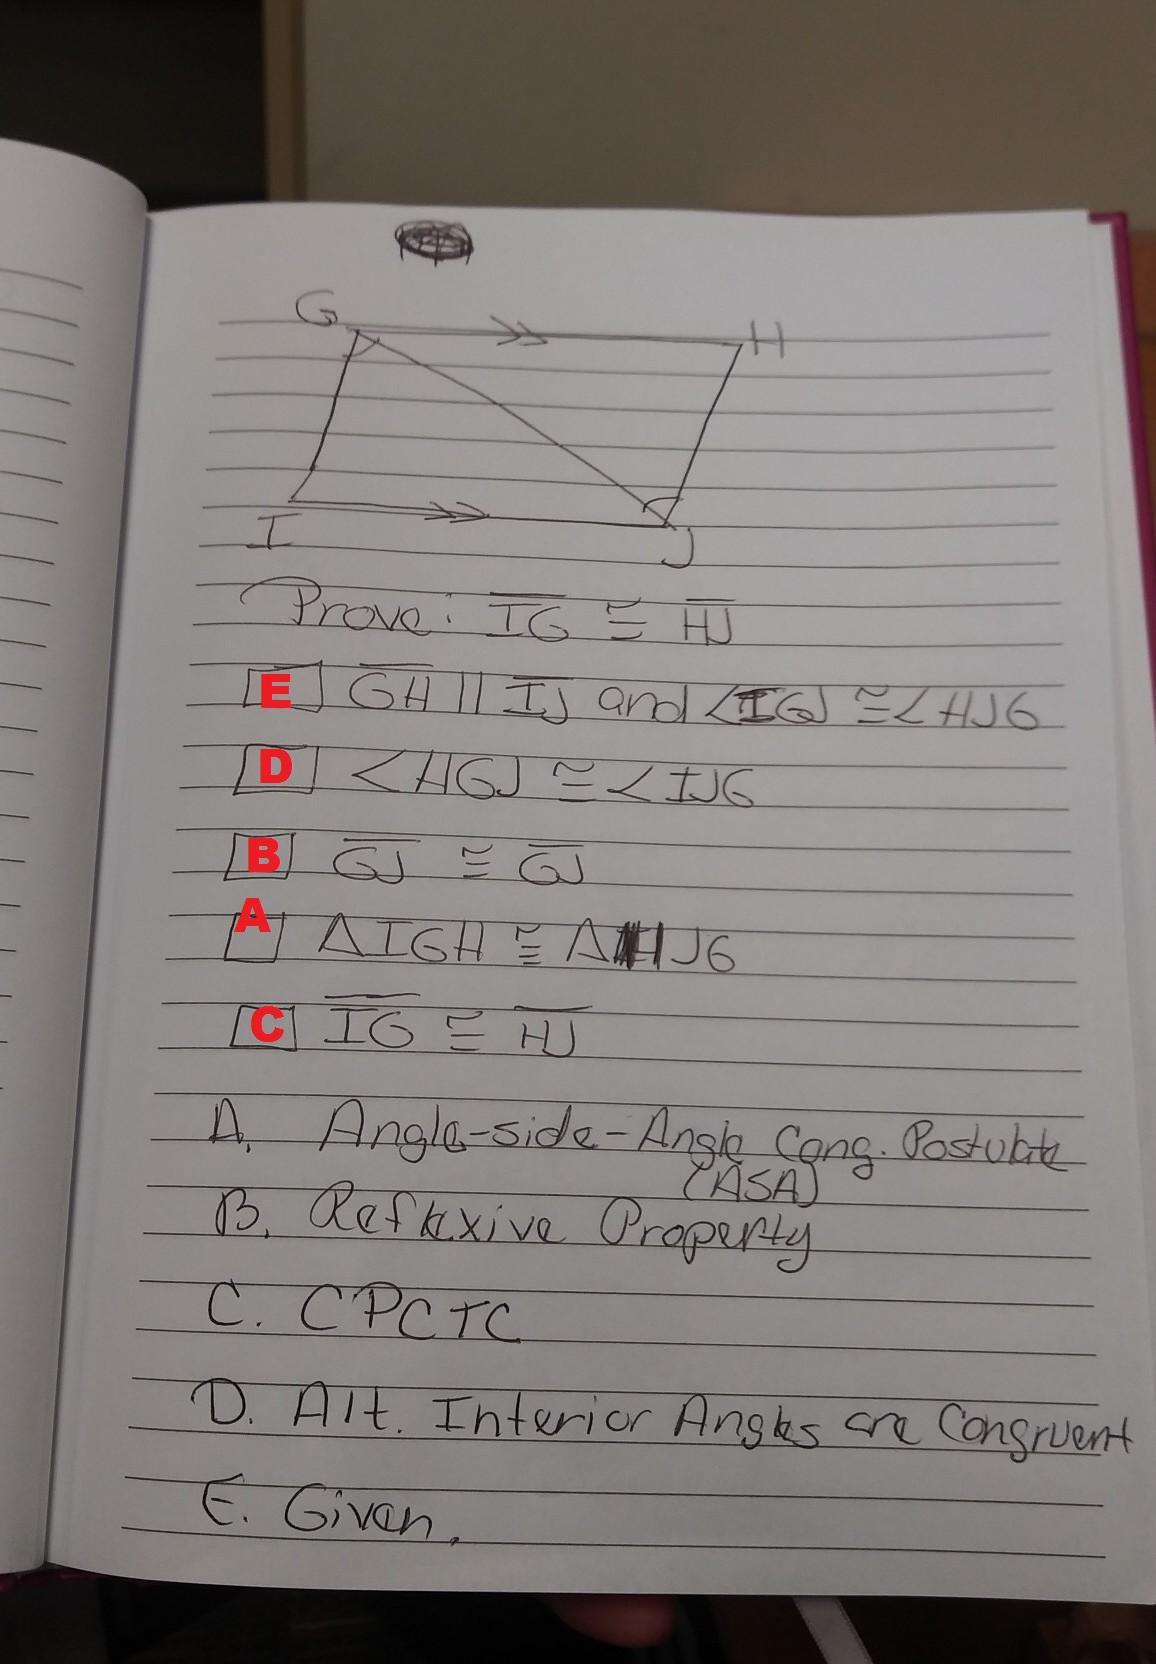 G
H
I
J
Prove: IG ≅ HJ
E GH || IJ and <IGJ ≅ <HJG
D <HGJ ≅ <IJG
B GJ ≅ GJ
A ΔIGH ≅ ΔHJG
C IG ≅ HJ
A. Angle-side-Angle Cong. Postulate
(ASA)
B. Reflexive Property
C. CPCTC
D. Alt. Interior Angles are Congruent
E. Given.